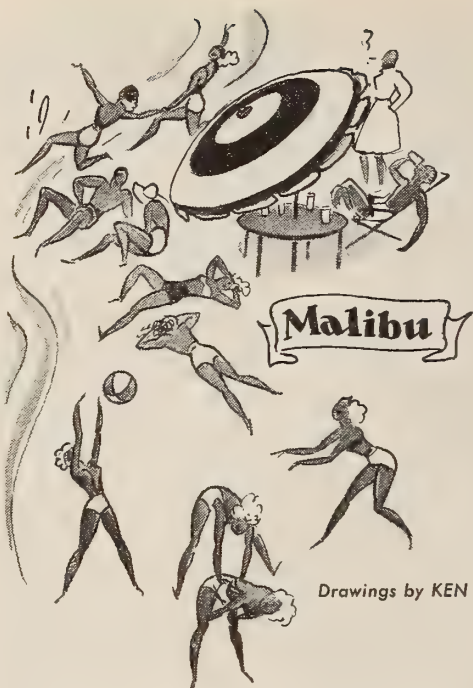 Malibu
Drawings by KEN